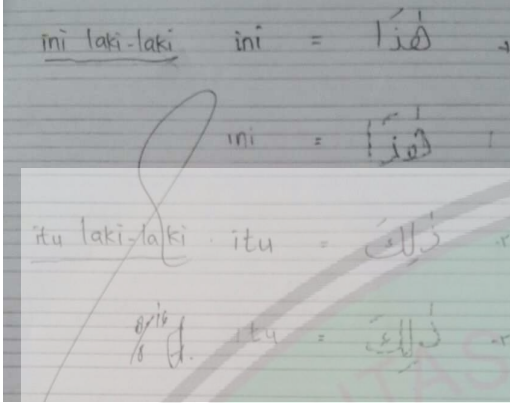 ini laki-laki ini = هٰذَا
ini = هٰذَا
itu laki-laki itu = ذٰلِكَ
8/8 16 itu = ذٰلِكَ
TAS